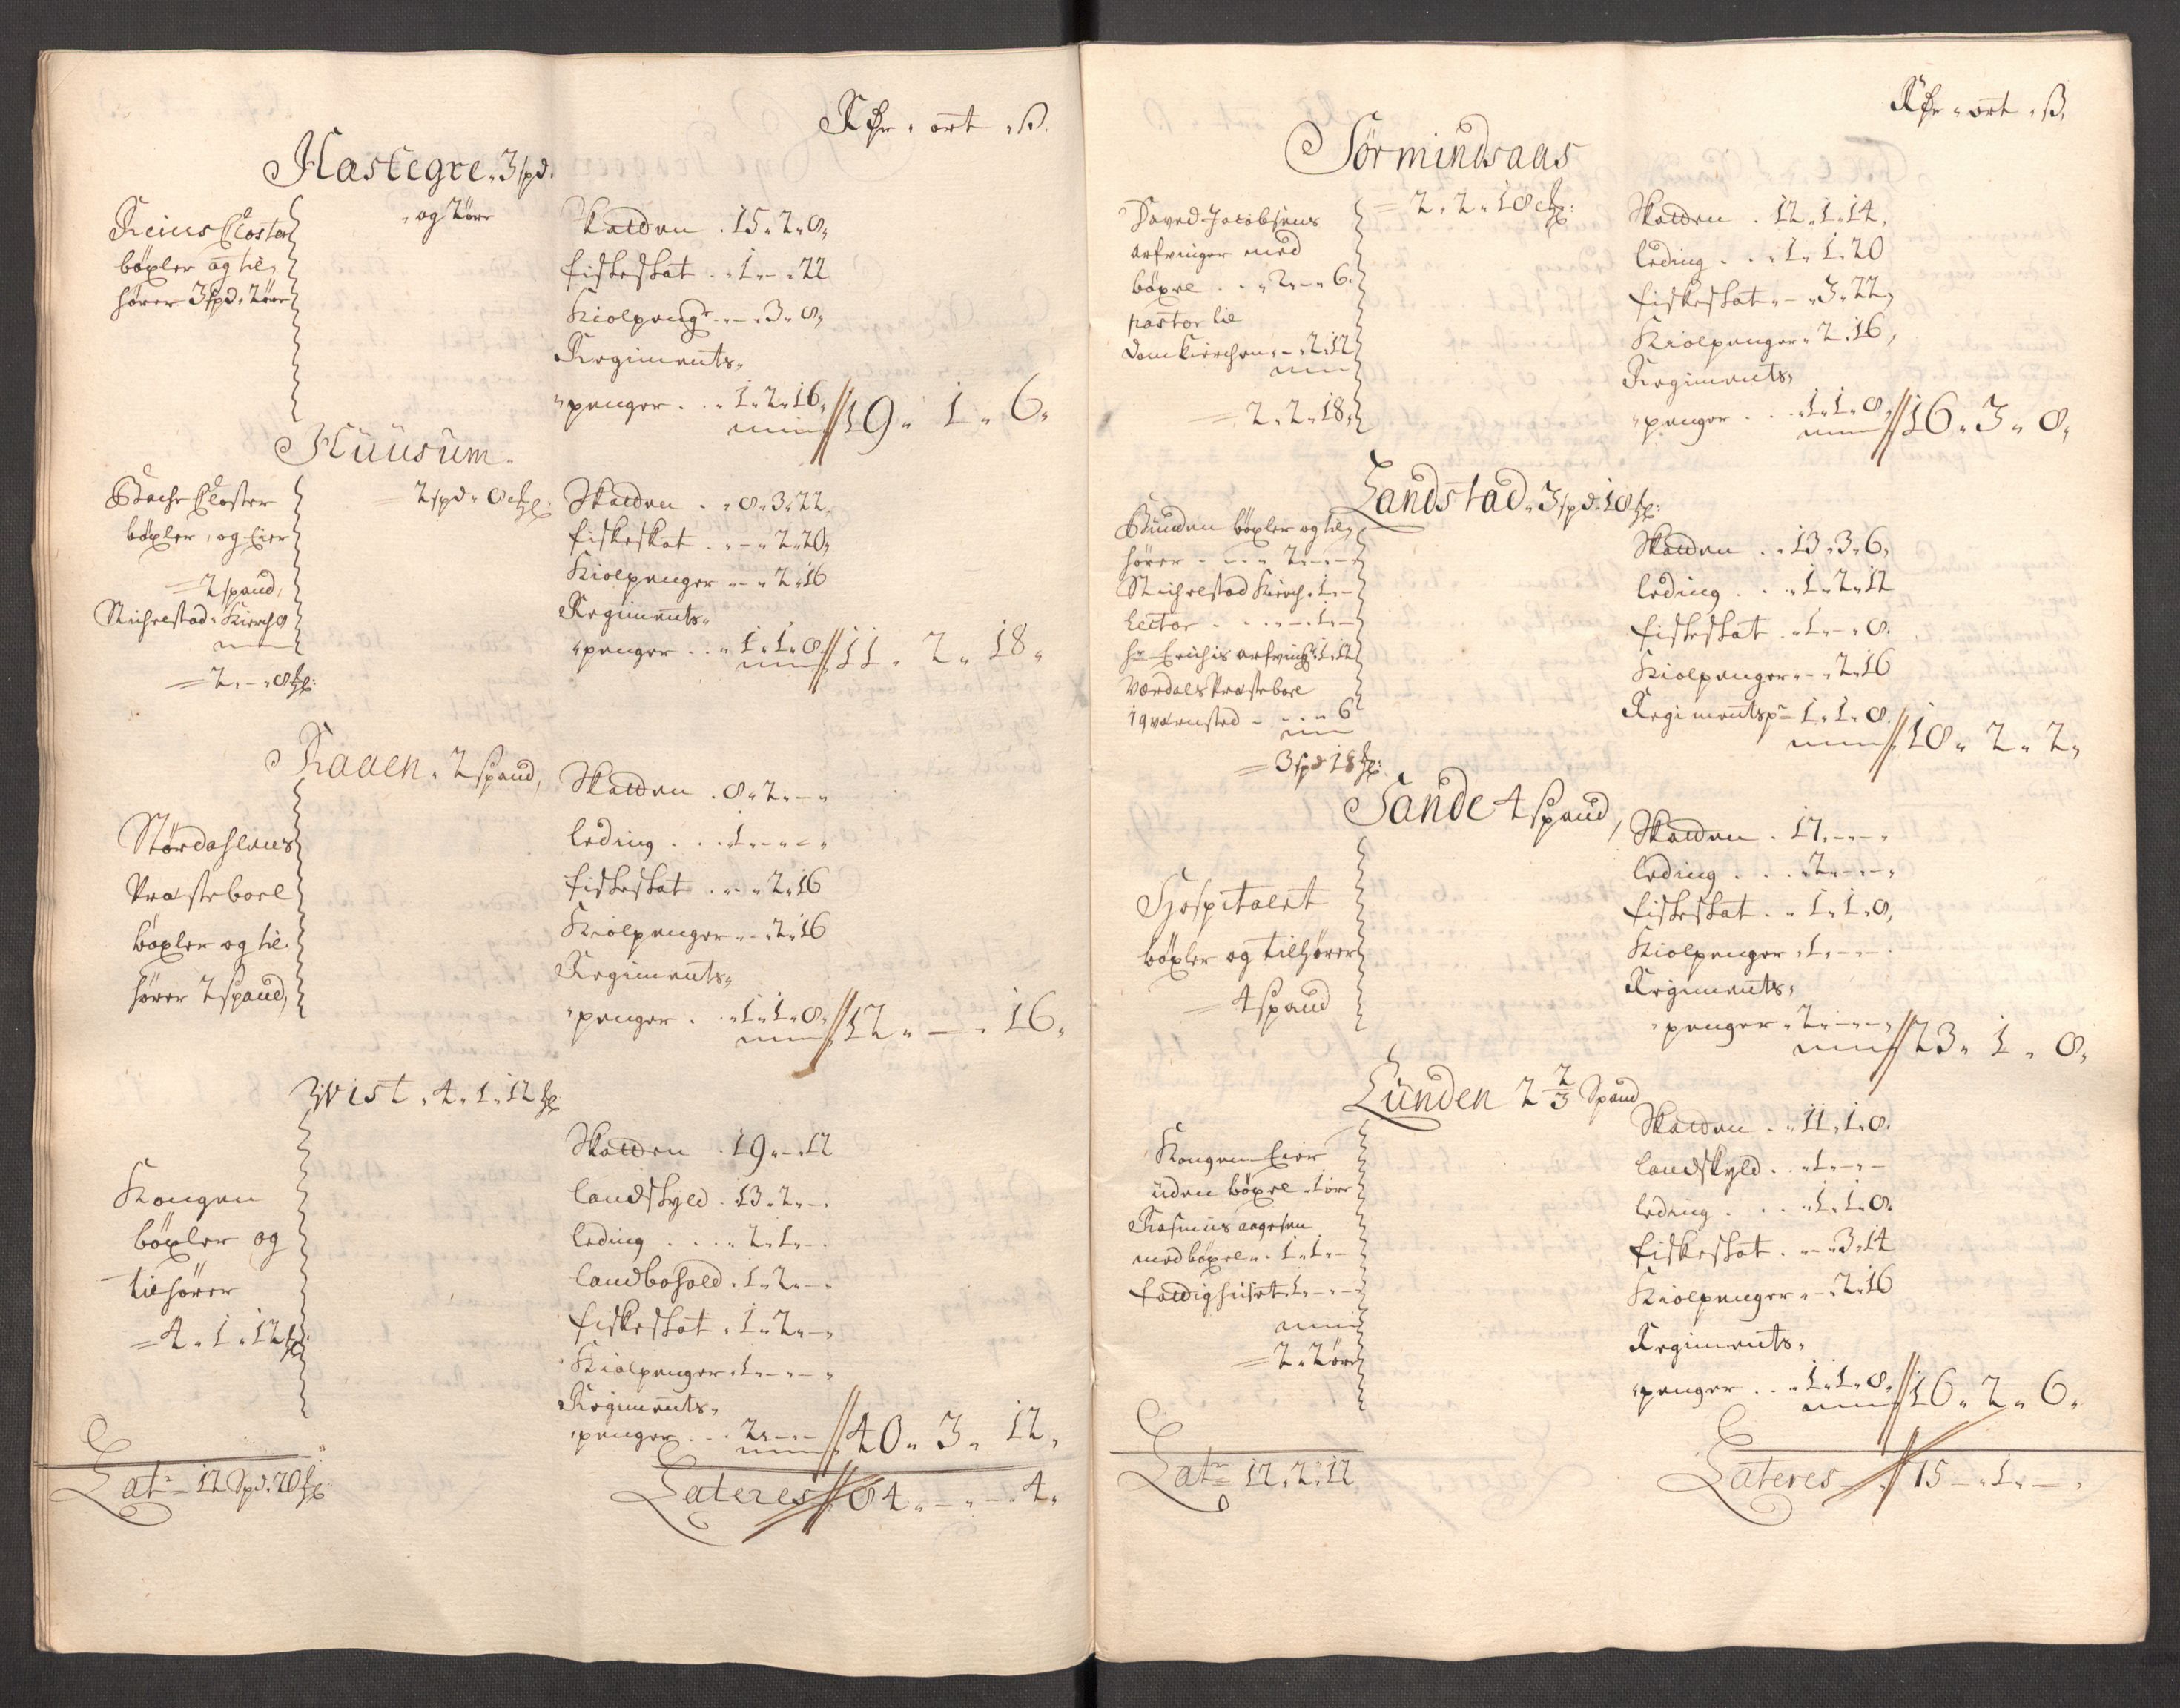 Rdr " ort " ß.
Hastegre " 3 spd.
" og 2 øre
Reins Closter
böxler og til,
hører 3 spd. 2 øre
Skatten . 15 " 2 " 8,
fiskeskat . . 1 " - " 22
Kiolpeng - - " 3 " 8,
Regiments "
" penger . . " 1 " 2 " 16 " // 19 " 1 " 6 "
Huusum "
= 2 spd " 8 mkl:
Bache Closter
böxler, og Eier
= 2 spand,
Stichelstad " Kirche 8
= 2 " - " 8 mkl:
Skatten . " 8 " 3 " 22.
fiskeskat . " - " 2 " 20,
Kiolpenger - - " 2 " 16
Regiments "
" penger . . " 1 " 1 " 8 // 11 " 2 " 18 "
Raaen " 2 spand,
Størdahlens
Præsteboel
böxler og til.
hører 2 spand,
Skatten . 8 " 2 " - "
leding . . . 1 " - " - "
fiskeskat . " - " 2 " 16
Kiolpenger " - " 2 " 16
Regiments "
" penger . . " 1 " 1 " 8 " // 12 " - " 16 "
Wist " 4 " 1 " 12 mkl
Kongen
böxler og
tilhører
= 4 " 1 " 12 mkl
Skatten . 19 " - " 12
landskyld . 13 " 2 " - "
leding . . . " 2 " 1 " - .
landbohold . 1 " 2 " - "
fiskeskat " 1 " 2 " - "
Kiolpenger " 1 " - " - "
Regiments "
" penger . . . 2 " - " - // 40 " 3 " 12 "
Lat = 12 Spd " 20 mkl
Lateres // 84 " - " - " 4 "
Rdr " ort " ß.
Sørmindsaas
= 2 " 2 " 18 mkl:
Daved Jacobsens
arfvinger med
böxel . . " 2 " - " 6.
pastor til
Domkirchen " - " 2 " 12
= 2 " 2 " 18,
Skatten . 12 " 1 " 14,
leding . . " 1 " 1 " 20
fiskeskat " - " 3 " 22,
Kiolpenger " 2 " 16,
Regiments,
" penger . . " 1 " 1 " 8 // 16 " 3 " 8,
Landstad " 3 spd " 18 mkl:
Bunden böxler og til,
hører - - - " 2 " - "
Stichelstad Kirch " 1 " -
Lector . . . " - " 1 " -
hr Erichs arfving " 1 " 12
Værdals Præsteboel
i qvernsted - - - " 6
= 3 spd 18 mkl:
Skatten . . 13 " 3 " 6,
leding . . . " 1 " 2 " 12
fiskeskat . " 1 " - " 8.
Kiolpenger " - " 2 " 16
Regimentsp " 1 " 1 " 8. // 18 " 2 " 2,
Sande 4 spand,
Hospitalet
böxler og tilhører
= 4 spand
Skatten . 17 " - " - "
leding . . . . 2 " - " - "
fiskeskat . " 1 " 1 " 8,
Kiolpenger " 1 " - " -
Regiments,
" penger " 2 " - " - " // 23 " 1 " 8,
Lunden 2 2/3 Spand
Kongen Eier
uden böxel 1 øre
Rasmus aagesen
med böxel " . 1 " 1 " -
fattighuset " 1 " - " -
= 2 " 2 øre
Skatten . " 11 " 1 " 8.
landskyld . . " 1 " - " -
leding . . . " 1 " 1 " 8.
fiskeskat . " - " 3 " 14
Kiolpenger " - " 2 " 16
Regiments "
" penger . . " 1 " 1 " 8 " // 16 " 2 " 6 "
Lat = 12 " 2 " 12
Lateres - // 75 - " 1 " - "